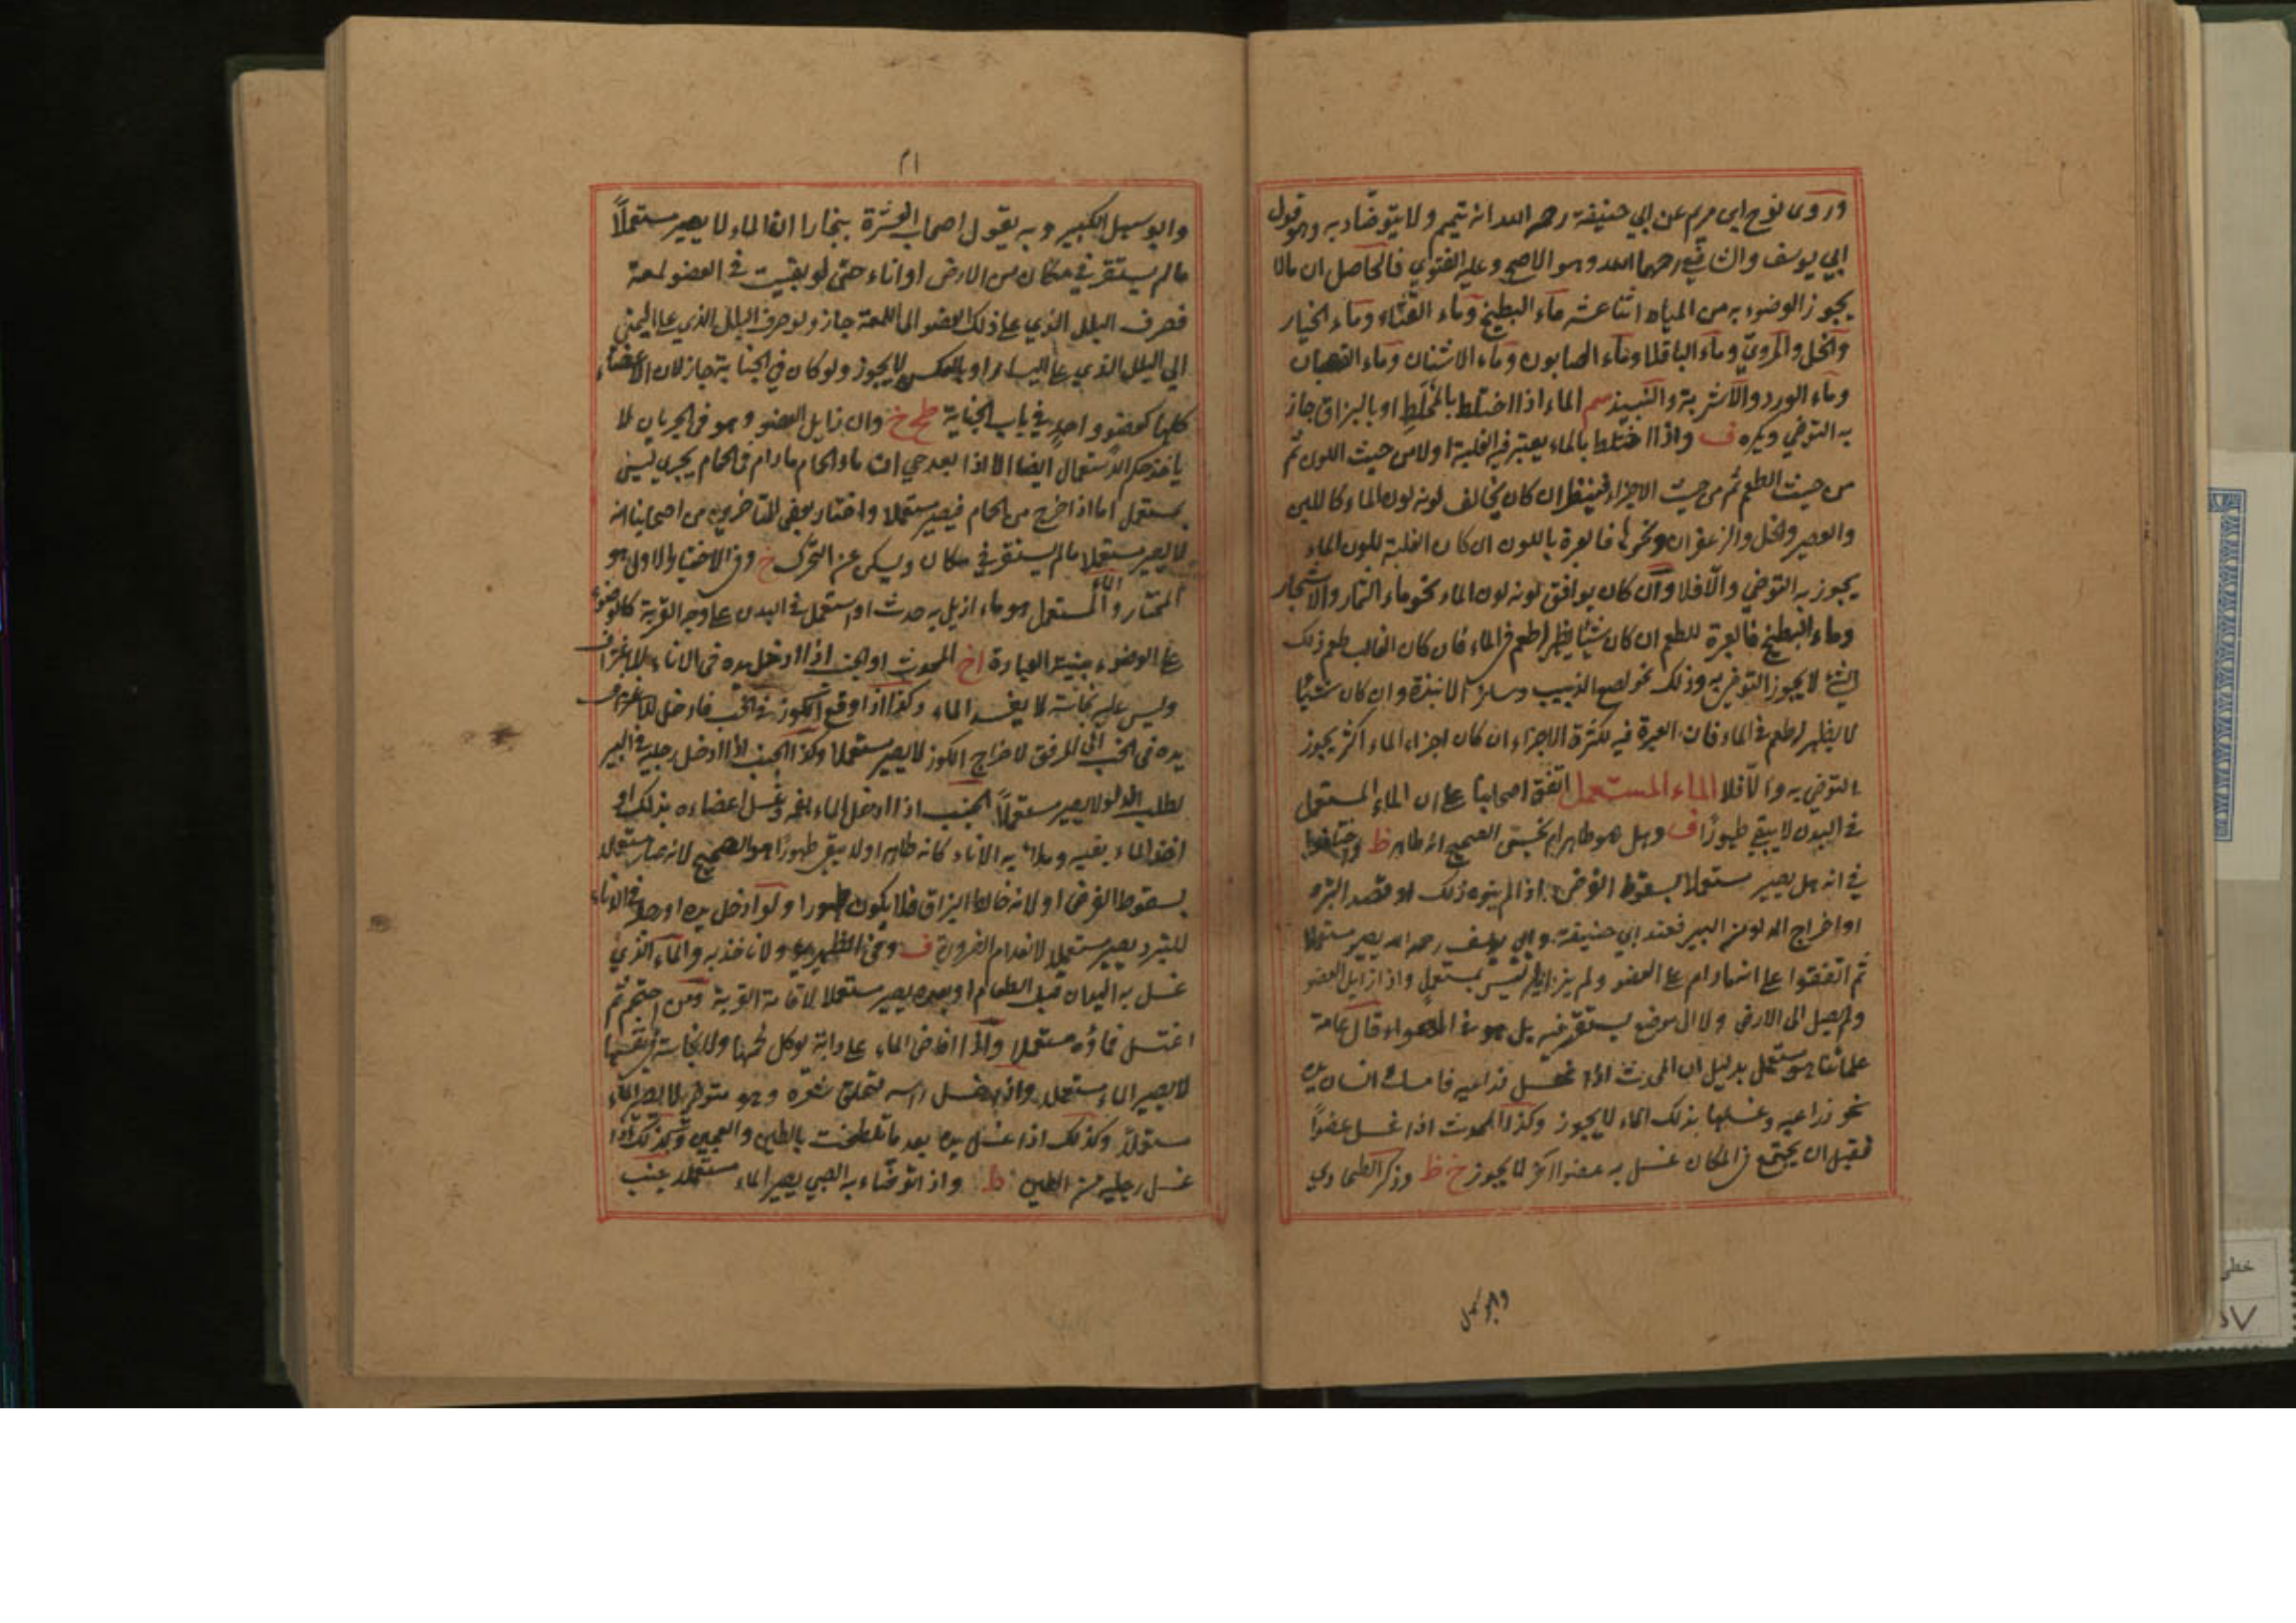 وروى نوح ابن مريم عن ابي حنيفة رحمه الله انه تيمم ولا يتوضاء به وهو قول
ابي يوسف والشافعي رحمهما الله وهو الاصح وعليه الفتوى فالحاصل ان مالا
يجوز الوضوء به من المياه اثنا عشر ماء البطيخ وماء القثاء وماء الخيار
والخل والمروي وماء الباقلا وماء الصابون وماء الاشنان وماء
وماء الورد والاشربة والنبيذ سم الماء اذا اختلط بالمخلط او بالبزاق جاز
به التوضي ويكره ف واذا اختلط بالماء يعتبر فيه الغلبة اولا من حيث اللون ثم
من حيث الطعم ثم من حيث الاجزاء فينظر ان كان يخالف لونه لون الماء كاللبن
والعصير والخل والزعفران ونحوها فالعبرة باللون ان كان الغلبة للون الماء
يجوز به التوضي والا فلا وان كان يوافق لونه لون الماء نحو ماء الثمار والاشجار
وماء البطيخ فالعبرة للطعم ان كان شيئا يظهر له طعم في الماء فان كان الغالب طعم ذلك
الشئ لا يجوز التوضي به وذلك نحو نقيع الزبيب وسائر الانبذة وان كان شيئا
لا يظهر له طعم في الماء فان العبرة فيه لكثرة الاجزاء ان كان اجزاء الماء اكثر يجوز
التوضي به والا فلا الماء المستعمل اتفق اصحابنا على ان الماء المستعمل
في البدن لا يبقى طهورا ف وهل هو طاهر ام نجس الصحيح انه طاهر ظ واختلفوا
في انه هل يصير مستعملا بسقوط الفرض اذا لم ينوه ذلك او قصد التبرد
او اخراج الدلو من البير فعند ابي حنيفة وابي يوسف رحمه الله يصير مستعملا
ثم اتفقوا على انه مادام على العضو ولم يزايله ليس بمستعمل واذا زايل العضو
ولم يصل الى الارض ولا الى موضع يستقر فيه بل هو في الهواء قال عامة
علمائنا هو مستعمل بدليل ان المحدث اذا غسل ذراعيه فامسك انسان يده
نحو ذراعيه وغسلها بذلك الماء لا يجوز وكذا المحدث اذا غسل عضوا
فقبل ان يجتمع في المكان غسل به عضوا اخر لا يجوز خ ظ وذكر الطحاوي
وابو سهل
٢١
وابو سهل الكبير وبه يقول اصحاب بخارا ان الماء لا يصير مستعملا
مالم يستقر في مكان من الارض او اناء حتى لو بقيت في العضو لمعة
فصرف البلل الذي على ذلك العضو الى اللمعة جاز ولو صرف البلل الذي على اليمنى
الى البلل الذي على اليسار او بالعكس لا يجوز ولو كان في الجنابة جاز لان الاعضاء
كلها كعضو واحد في باب الجنابة طح خ وان زايل العضو وهو في الجريان لا
ياخذ حكم الاستعمال ايضا الا اذا بعد حي ان ماء الحمام مادام في الحمام يجري ليس
بمستعمل اما اذا خرج من الحمام فيصير مستعملا واختار بعض المتاخرين من اصحابنا انه
لا يصير مستعملا مالم يستقر في مكان ويسكن عن التحرك خ وفي الاختيار الاولى هو
المختار والماء المستعمل هو ماء ازيل به حدث او استعمل في البدن على وجه القربة كالوضوء
على الوضوء بنية العبادة اخ المحدث او الجنب اذا ادخل يده في الاناء للاغتراف
وليس عليه نجاسة لا يفسد الماء وكذا اذا وقع الكوز في الحب فادخل للاغتراف
يده في الحب الى المرفق لاخراج الكوز لا يصير مستعملا وكذا الجنب اذا ادخل رجليه في البير
لطلب الدلو لا يصير مستعملا الجنب اذا ادخل الماء بفمه وغسل اعضاءه بذلك او
اخذ الماء بفيه وملا به الاناء كانه طاهرا ولا يبقى طهورا هو الصحيح لانه صار مستعملا
بسقوط الفرض او لانه خالطه البزاق فلا يكون طهورا ولو ادخل يده او رجله في الاناء
للتبرد يصير مستعملا لانعدام الضرورة ف وفي الظهيرية ولا ناخذ به والماء الذي
غسل به اليدان قبل الطعام او بعده يصير مستعملا لاقامة القربة ومن احتجم ثم
اغتسل فماؤه مستعملا واذا افاض الماء على دابة يوكل لحمها ولا نجاسة في نفسها
لا يصير الماء مستعملا واذا غسل راسه لتحلق شعره وهو متوضي لا يصير الماء
مستعملا وكذلك اذا غسل يده بعد ما تلطخت بالطين والعجين وكذلك اذا
غسل رجليه من الطين ط واذا توضاء به الصبي يصير الماء مستعملا
خطى